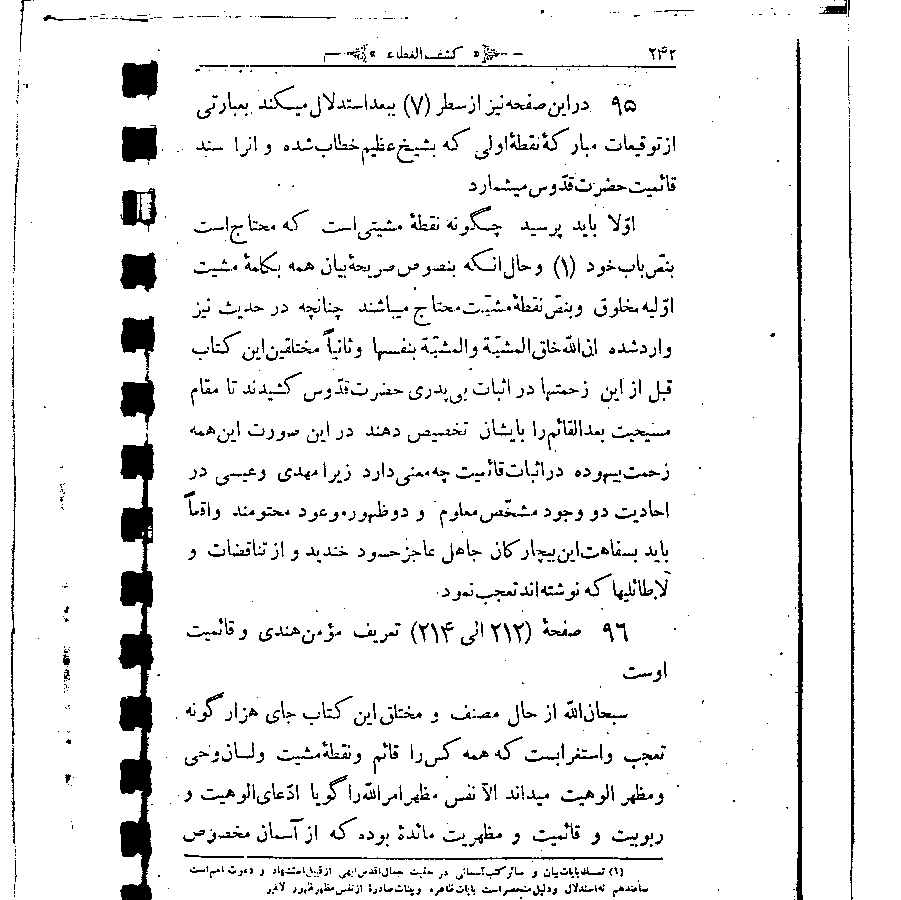 ۲۴۲ ﴿ کشف الغطاء ﴾
۹۵ در این صفحه نیز از سطر (۷) ببعد استدلال میکند بعبارتی
از توقیعات مبارکهٔ نقطهٔ اولی که بشیخ عظیم خطاب شده و انرا سند
قائمیت حضرت قدّوس میشمارد
اوّلا باید پرسید چگونه نقطهٔ مشیتی است که محتاج است
بنص باب خود (۱) و حال انکه بنصوص صریحهٔ بیان همه بکلمهٔ مشیت
اوّلیه مخلوق و بنص نقطهٔ مشیّت محتاج میباشند چنانچه در حدیث نیز
وارد شده ان الله خلق المشیّة والمشیّة بنفسها و ثانیاً مختلقین این کتاب
قبل از این زحمتها در اثبات بی پدری حضرت قدّوس کشیدند تا مقام
مسیحیت بعد القائم را بایشان تخصیص دهند در این صورت این همه
زحمت بیهوده در اثبات قائمیت چه معنی دارد زیرا مهدی و عیسی در
احادیت دو وجود مشخّص معلوم و دو ظهور موعود محتومند واقعاً
باید بسفاهت این بیچارکان جاهل عاجز حسود خندید و از تناقضات و
لاطائلیها که نوشته اند تعجب نمود
۹۶ صفحهٔ (۲۱۲ الی ۲۱۴) تعریف مؤمن هندی و قائمیت
اوست
سبحان الله از حال مصنف و مختلق این کتاب جای هزار گونه
تعجب و استغرابست که همه کس را قائم و نقطهٔ مشیت و لسان وحی
و مظهر الوهیت میداند الّا نفس مظهر امر الله را گویا ادّعای الوهیت و
ربوبیت و قائمیت و مظهریت مائدهٔ بوده که از آسمان مخصوص
(۱) تمسك بایات بیان و سائر کتب آسمانی در حقیت جمال اقدس ابهی از قبیل استشهاد و دعوت امم است
بما عندهم نه استدلال و دلیل منحصر است بایات ظاهره و بینات صادرهٔ از نفس مظهر ظهور لا غیر